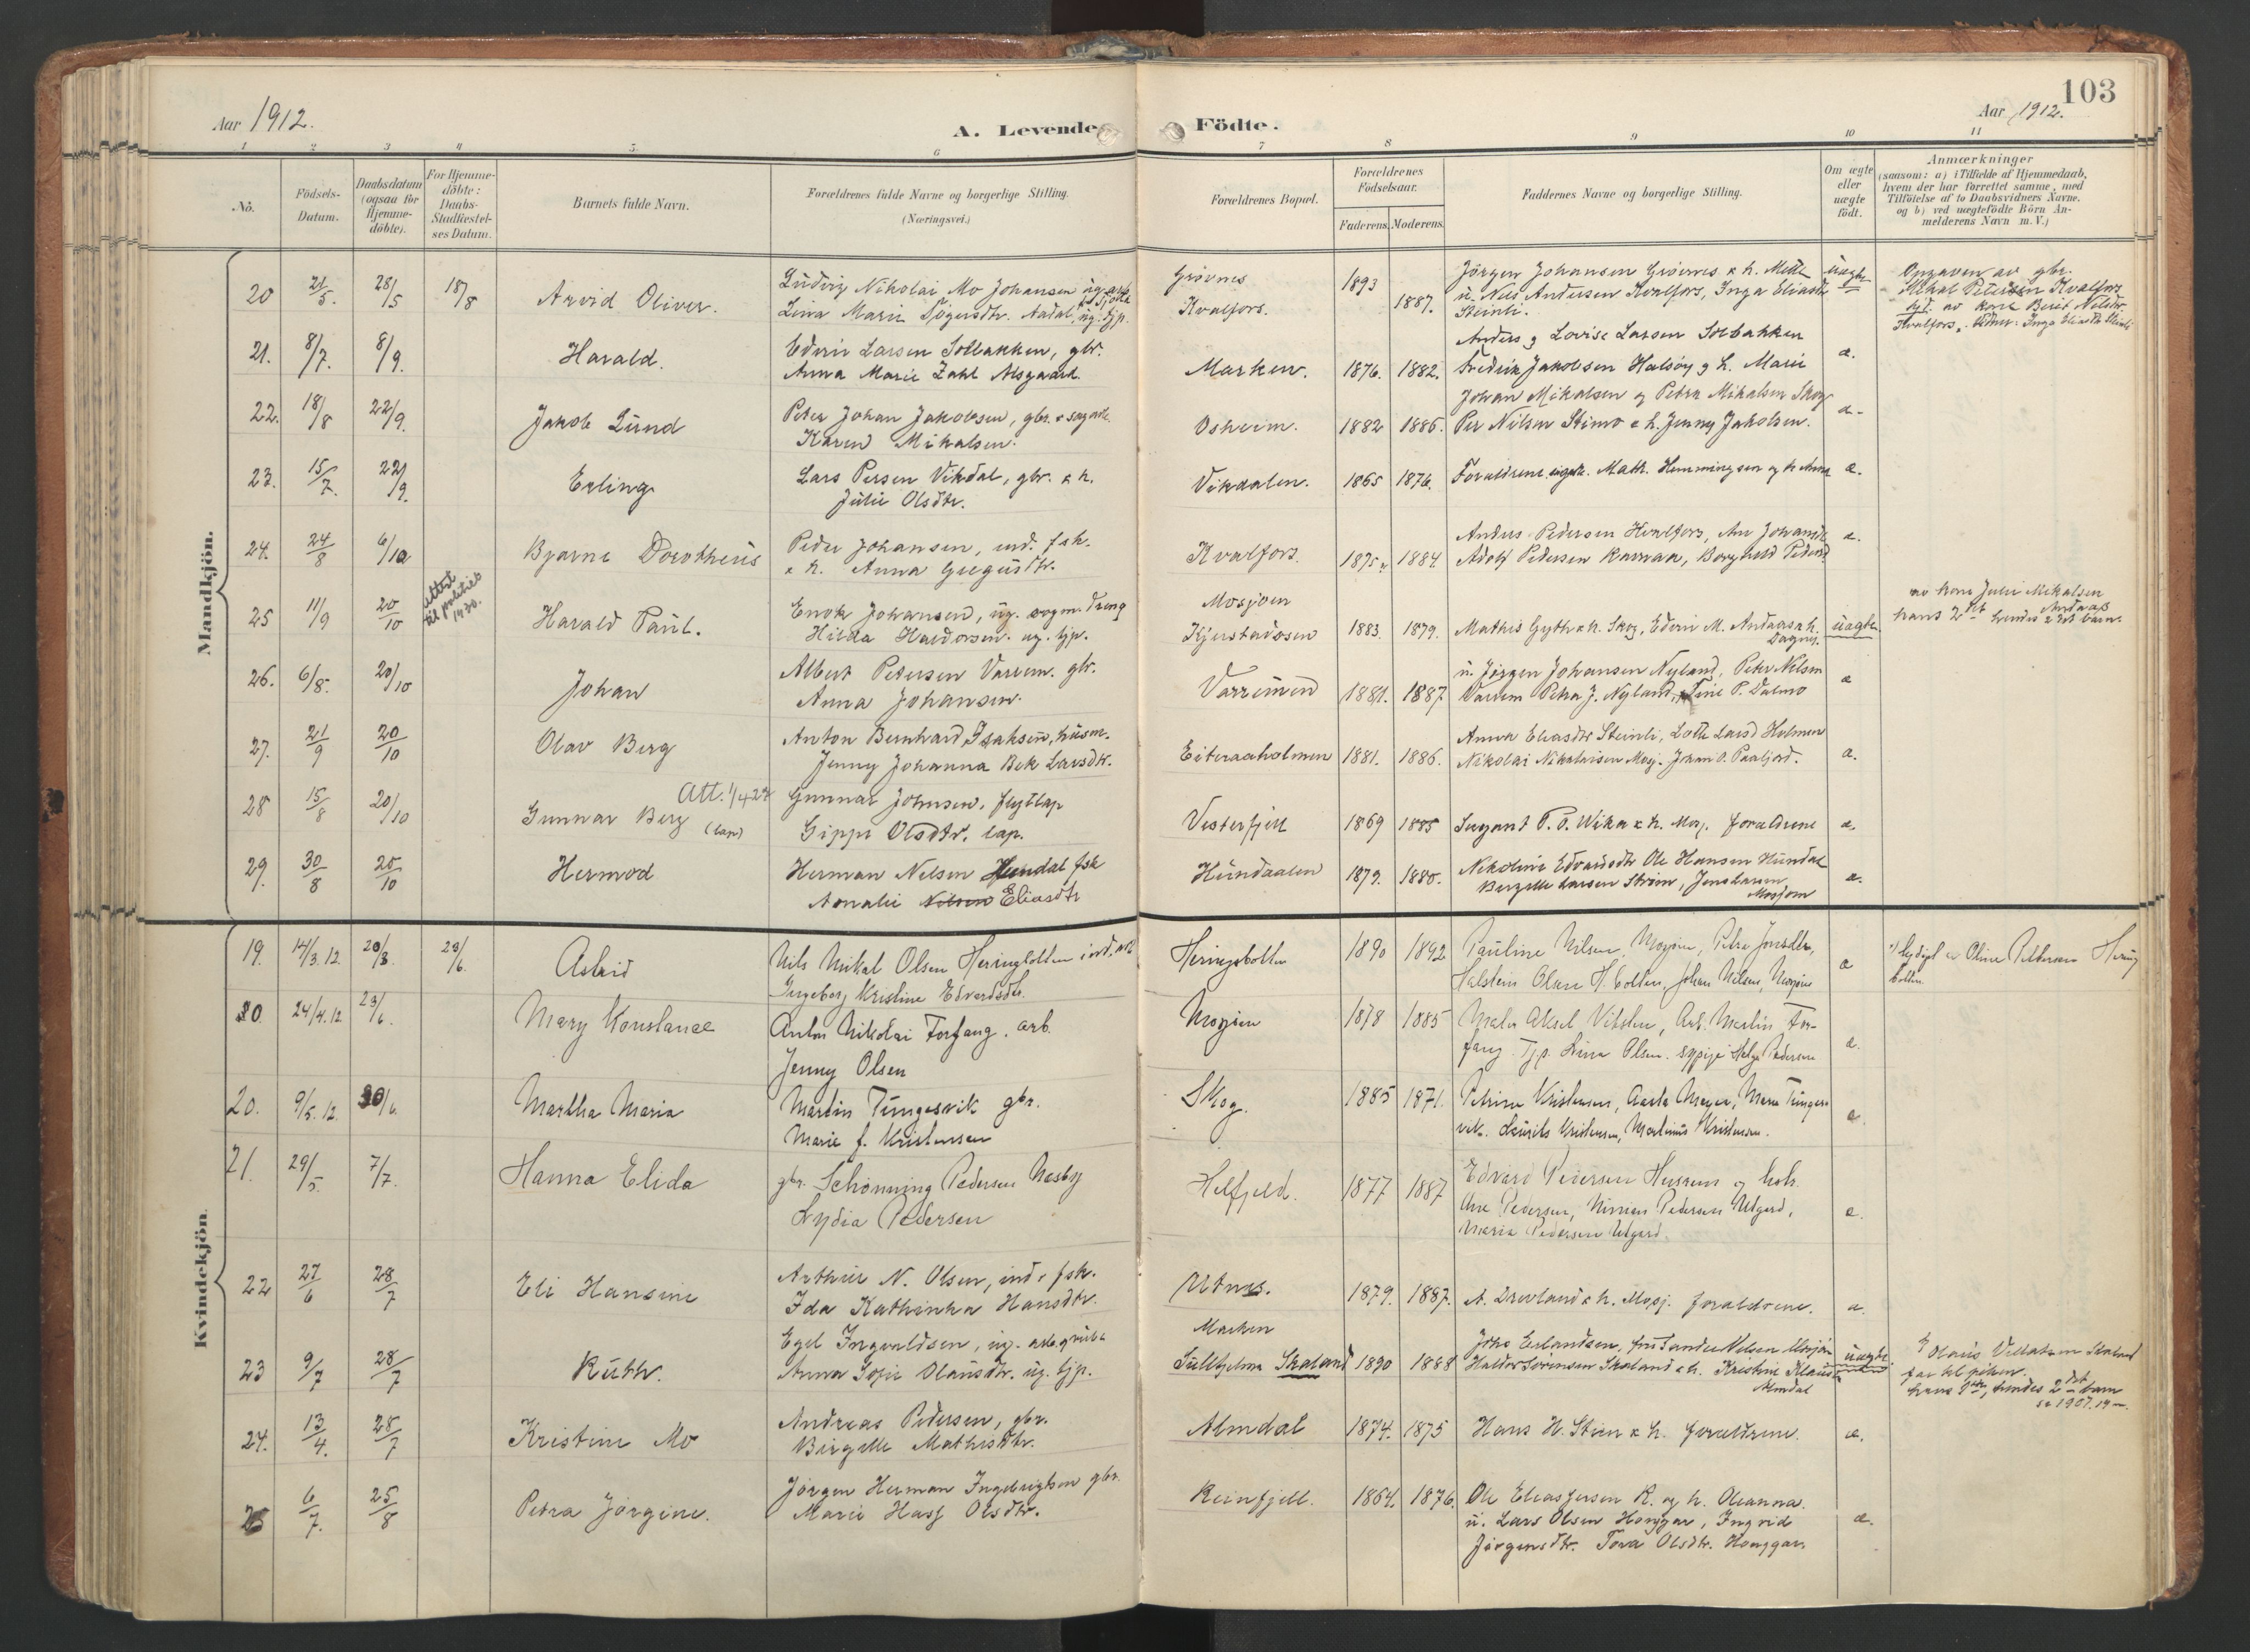 103
Aar 1912.
A. Levende Födte.
Aar 1912.
1 2 3 4 5. 6 7 8 9 10 11
No.
Födsels-
Datum.
Daabsdatum
(ogsaa for
Hjemme-
döbte).
For Hjemme-
döbte:
Daabs-
Stadfæstel-
ses Datum.
Barnets fulde Navn.
Forældrenes fulde Navne og borgerlige Stilling.
(Næringsvei.)
Forældrenes Bopæl.
Forældrenes
Födselsaar.
Faderens. Moderens.
Faddernes Navne og borgerlige Stilling.
Om ægte
eller
uægte
födt.
Anmærkninger
(saasom: a) i Tilfælde af Hjemmedaab,
hvem der har forrettet samme, med
Tilföielse af to Daabsvidners Navne.
og b) ved uægtefödte Börn An-
melderens Navn m. V.)
Mandkjön.
20 21/5. 28/5 18/8 Arvid Oliver.
Ludvig Nikolai Mo Johansen
Lina Marie
Grövnes
Kvalfors.
1893 1887.
Jörgen Johansen
u. Nils Andersen Kvalfors, Inga Eliasdtr
Steinli.
uægte
Opgaven av gbr.
Mikal Petersen Kvalfors
av kone Berit Nilsdtr.
Kvalfors,
21. 8/7. 8/9. Harald.
Ederin Larsen Solbakken, gbr.
Anna Marie Zahl Alsgaard.
Marken. 1876. 1882.
Anders og Lovise Larsen Solbakken
Fredrik Jakobsen Halsöy og h. Marie
æ.
22. 18/8 22/9. Jakob Lund
Peter Johan Jakobsen, gbr. & sagarb.
Karen Mikalsen.
Osheim. 1882 1886.
Johan Mikalsen og Petra Mikalsen Skog
Per Nilsen Stimo & h. Jenny Jakobsen.
æ-
23. 15/7. 22/9. Erling
Lars Persen Vikdal, gbr. & h.
Julie Olsdtr.
Vikdalen. 1865 1876.
Forældrene. Math. Hemmingsen og h. Anna
æ.
24. 24/8 6/10 Bjarne Dorotheus
Peder Johansen, ind. fsk.
& h. Anna Gregusdtr.
Kvalfors. 1875. 1884.
Anders Pedersen Kvalfors,
Adolf Pedersen Ramnaa, Borghild
æ.
25 11/9 20/10
attest
til politiet
1930.
Harald Paul.
Enok Johansen, ug. sogm. dreng
Hilda Haldorsen. ug. tjp.
Mosjøen
Kjerstadosen
1883. 1879.
Mathis Gyth & h. Skog, Ederin M. Andaas & h.
Dagny.
uægte.
av kone Julie Mikalsen
Andaas
hans 2det hendes 2det barn.
26. 6/8. 20/10 Johan
Albert Petersen Varrem. gbr.
Anna Johansen.
Varremen 1881. 1887
u. Jörgen Johansen Nyland, Peter Nilsen
Varrem Petra J. Nyland, Tine P. Dalmo
æ
27. 21/9 20/10 Olav Berg
Anton Bernhard Isaksen, husm.
Jenny Johanna Bek Larsdtr.
Eiteraaholmen 1881. 1886.
Anna Eliasdtr Steinli, Lotte Larsd Holmen
Nikolai Nikolaisen Mosj. Johan O. Paaljord.
æ.
28 15/8 20/10
Att. 1/4 27
Gunnar Berg (lap)
Gunnar Johnsen, flytlap
Gippi Olsdtr. lap.
Vesterfjell 1869 1885
Sergeant P. O. Wika & h. Mosj. forældrene
æ.
29. 30/8 20/10 Hermod
Herman Nelsen Hundal fsk
Amalie Nilsen Eliasdtr
Hundaalen 1879. 1880.
Nikoline Edvardsdtr Ole Hansen Hundal
Bergitte Larsen Ström, Jens Larsen
Mosjøen
æ.
Kvindekjön.
19. 14/3.12. 20/3. 23/6. Astrid
Nils Mikal Olsen Heringbotten
Ingeborg Kristine Edvardsdtr.
Heringbotten 1890 1892
Pauline Nilsen, Mosjøen, Petra
Halstein Olsen H.botten, Johan Nilsen, Mosjøen
æ
Oline Pettersen Hering
botten.
20. 24/4.12 23/6. Mary Konstance
Anton Nikolai Forfang. arb.
Jenny Olsen
Mosjøen 1878 1885
Maler Aksel Vitsten, Arb. Martin For-
fang. Tjp. Lina Olsen. sypige Helga Pedersen
æ.
20. 9/5.12. 30/6. Martha Maria
Martin Tungesvik gbr.
Marie f. Kristensen
Skog. 1885 1871.
Petrine Kristensen, Aasta Meyer, Maren Tunges-
vik. Laurits Kristensen, Martinus Kristensen.
æ
21. 29/5. 7/7. Hanna Elida
gbr. Schönning Pedersen Nesby
Lydia Pedersen
Helfjeld. 1877 1887
Edvard Pedersen
Ane Pedersen, Pedersen Utgard,
Maria Pedersen Utgard.
æ.
22 27/6 28/7 Eli Hansine
Arthur N. Olsen, ind. fsk.
Ida Kathinka Hansdtr.
Utnes. 1879. 1887.
A. Drevland & h. Mosj. forældrene.
æ.
23 9/7 28/7 Ruth.
Egil Ingvaldsen, ug. arb.
Anna Sofie Olausdtr. ug. tjp.
Marken
Sulitjelma Skaland 1890 1888
Erlandsen, Nilsen Mosjøen
Haldor Sörensen Skaland & h. Kristine Klausd
Almdal
uægte.
Olaus
far til piken.
hans 1ste, hendes 2det barn
24. 13/4. 28/7 Kristine Mo
Andreas Pedersen, gbr.
Birgitte Mathisdtr.
Almdal 1874. 1875
Hans H. Stien & h. forældrene.
æ.
25 6/7. 25/8 Petra Jörgine.
Jörgen Herman Ingebrigtsen gbr.
Marie Hass Olsdtr.
Reinfjell. 1864. 1876.
Ole Eliassersen R. og h. Oleanna.
u. Lars Olsen Honggar, Ingrid
Jörgensdtr. Tora Olsdtr. Honggar.
æ.